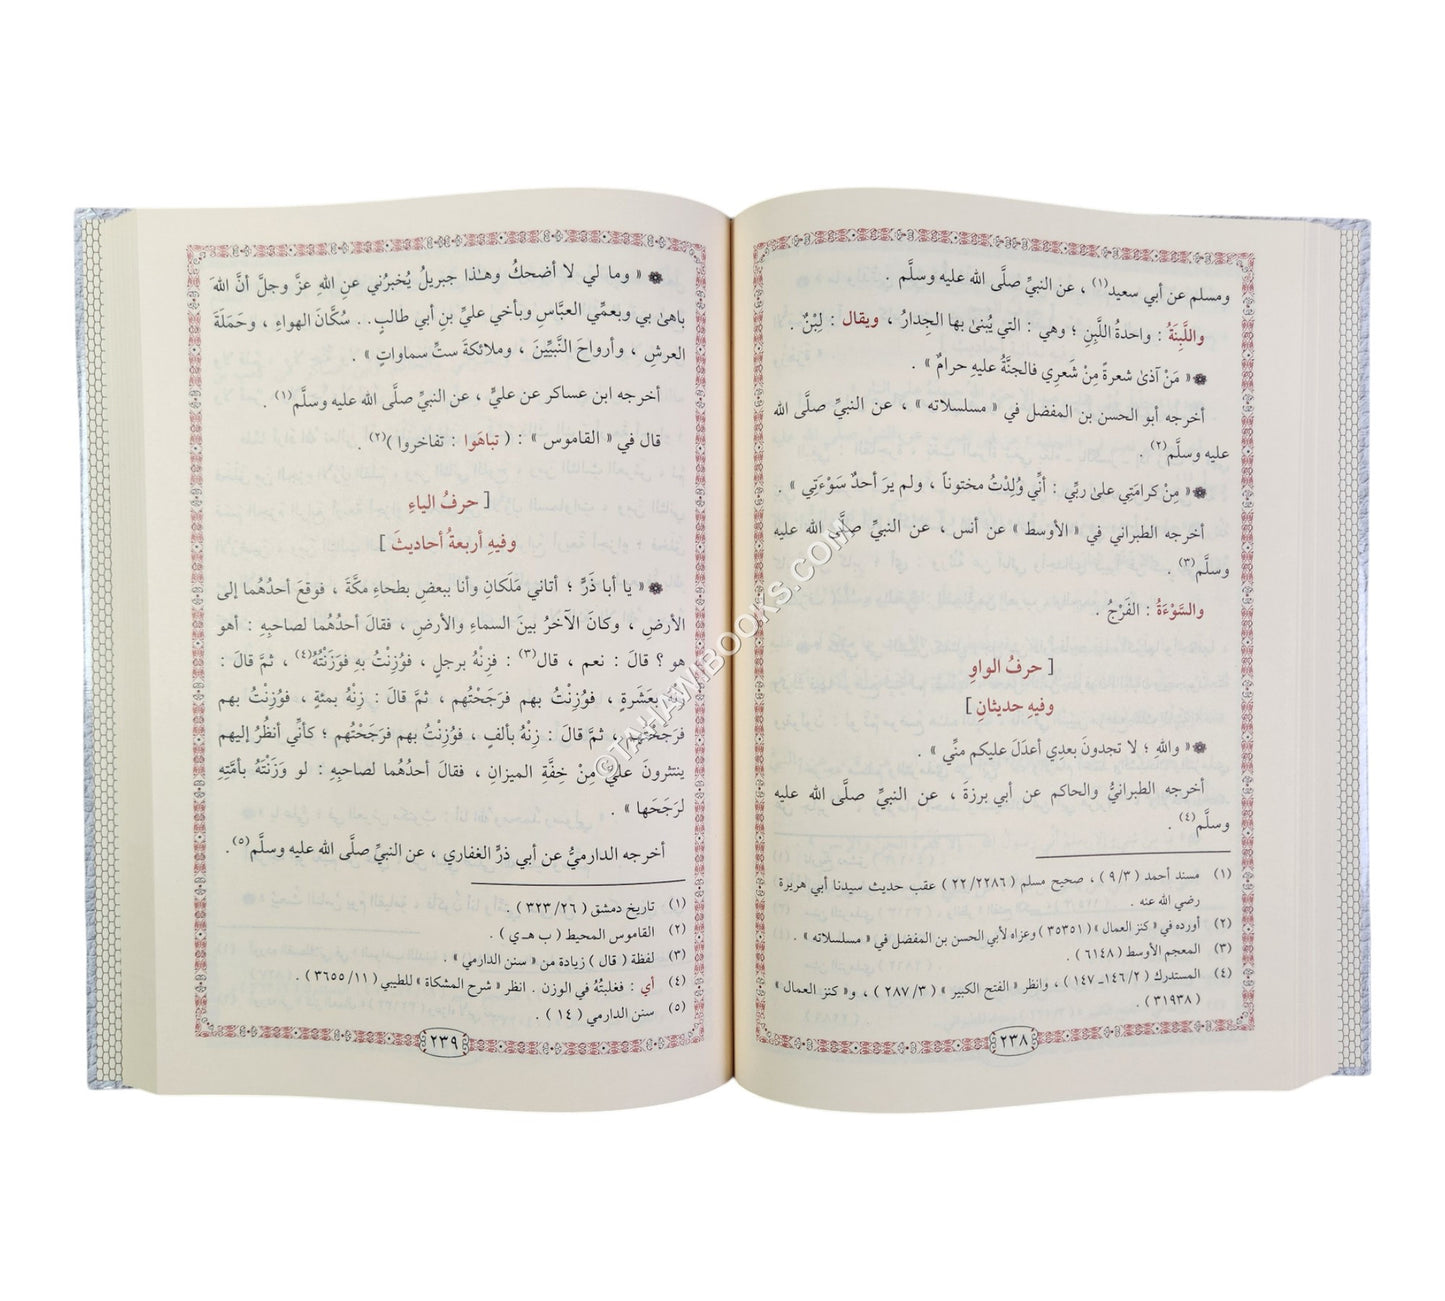 ومسلم عن أبي سعيد(١) ، عن النبيِّ صلَّى الله عليه وسلَّم .
واللَّبِنَةُ : واحدةُ اللَّبِنِ ؛ وهي : التي يُبْنىٰ بها الجِدارُ ، ويقال : لِبْنٌ .
« مَنْ آذىٰ شعرةً مِنْ شَعرِي فالجنَّةُ عليهِ حرامٌ » .
أخرجه أبو الحسن بن المفضل في « مسلسلاته » ، عن النبيِّ صلَّى الله
عليه وسلَّم(٢) .
« مِنْ كرامَتِي علىٰ ربِّي : أنِّي وُلِدْتُ مختوناً ، ولم يرَ أحدٌ سَوْءَتِي » .
أخرجه الطبراني في « الأوسط » عن أنس ، عن النبيِّ صلَّى الله عليه
وسلَّم(٣) .
والسَّوْءَةُ : الفَرْجُ .
[ حرفُ الواوِ
وفيهِ حديثانِ ]
« واللهِ ؛ لا تجدونَ بعدِي أعدَلَ عليكم منِّي » .
أخرجه الطبرانيُّ والحاكم عن أبي برزةَ ، عن النبيِّ صلَّى الله عليه
وسلَّم(٤) .
(١) مسند أحمد ( ٩/٣ ) ، صحيح مسلم ( ٢٢/٢٢٨٦ ) عقب حديث سيدنا أبي هريرة
رضي الله عنه .
(٢) أورده في « كنز العمال » ( ٣٥٣٥١ ) وعزاه لأبي الحسن بن المفضل في « مسلسلاته » .
(٣) المعجم الأوسط ( ٦١٤٨ ) .
(٤) المستدرك ( ١٤٦/٢ـ ١٤٧ ) ، وانظر « الفتح الكبير » ( ٢٨٧/٣ ) ، و« كنز العمال »
( ٣١٩٣٨ ) .
٢٣٨
« وما لي لا أضحكُ وهـٰذا جبريلُ يُخبرُني عنِ اللهِ عزَّ وجلَّ أنَّ اللهَ
باهىٰ بي وبعمِّي العبَّاسِ وبأخي عليِّ بنِ أبي طالبٍ . . سُكَّانَ الهواءِ ، وحَمَلَةَ
العرشِ ، وأرواحَ النَّبيِّينَ ، وملائكةَ ستِّ سماواتٍ » .
أخرجه ابن عساكر عن عليٍّ ، عن النبيِّ صلَّى الله عليه وسلَّم(١) .
قال في « القاموس » : ( تباهَوا : تفاخروا )(٢) .
[ حرفُ الياءِ
وفيهِ أربعةُ أحاديثَ ]
« يا أبا ذَرٍّ ؛ أتاني مَلَكانِ وأنا ببعضِ بطحاءِ مكَّةَ ، فوقعَ أحدُهُما إلى
الأرضِ ، وكانَ الآخرُ بينَ السماءِ والأرضِ ، فقالَ أحدُهُما لصاحبِهِ : أهو
هو ؟ قالَ : نعم ، قال(٣) : فزِنْهُ برجلٍ ، فوُزِنْتُ بهِ فوَزَنْتُهُ(٤) ، ثمَّ قالَ :
زِنْهُ بعَشَرةٍ ، فوُزِنْتُ بهم فرَجَحْتُهم ، ثمَّ قالَ : زِنْهُ بمئةٍ ، فوُزِنْتُ بهم
فرَجَحْتُهم ، ثمَّ قالَ : زِنْهُ بألفٍ ، فوُزِنْتُ بهم فرَجَحْتُهم ؛ كأنِّي أنظُرُ إليهم
ينتثرونَ عليَّ مِنْ خِفَّةِ الميزانِ ، فقالَ أحدُهُما لصاحبِهِ : لو وَزَنْتَهُ بأمَّتِهِ
لرَجَحَها » .
أخرجه الدارميُّ عن أبي ذرٍّ الغفاري ، عن النبيِّ صلَّى الله عليه وسلَّم(٥) .
(١) تاريخ دمشق ( ٣٢٣/٢٦ ) .
(٢) القاموس المحيط ( ب هـ ي ) .
(٣) لفظة ( قال ) زيادة من « سنن الدارمي » .
(٤) أي : فغلبتُهُ في الوزن . انظر « شرح المشكاة » للطيبي ( ٣٦٥٥/١١ ) .
(٥) سنن الدارمي ( ١٤ ) .
٢٣٩
©TAHAWIBOOKS.COM